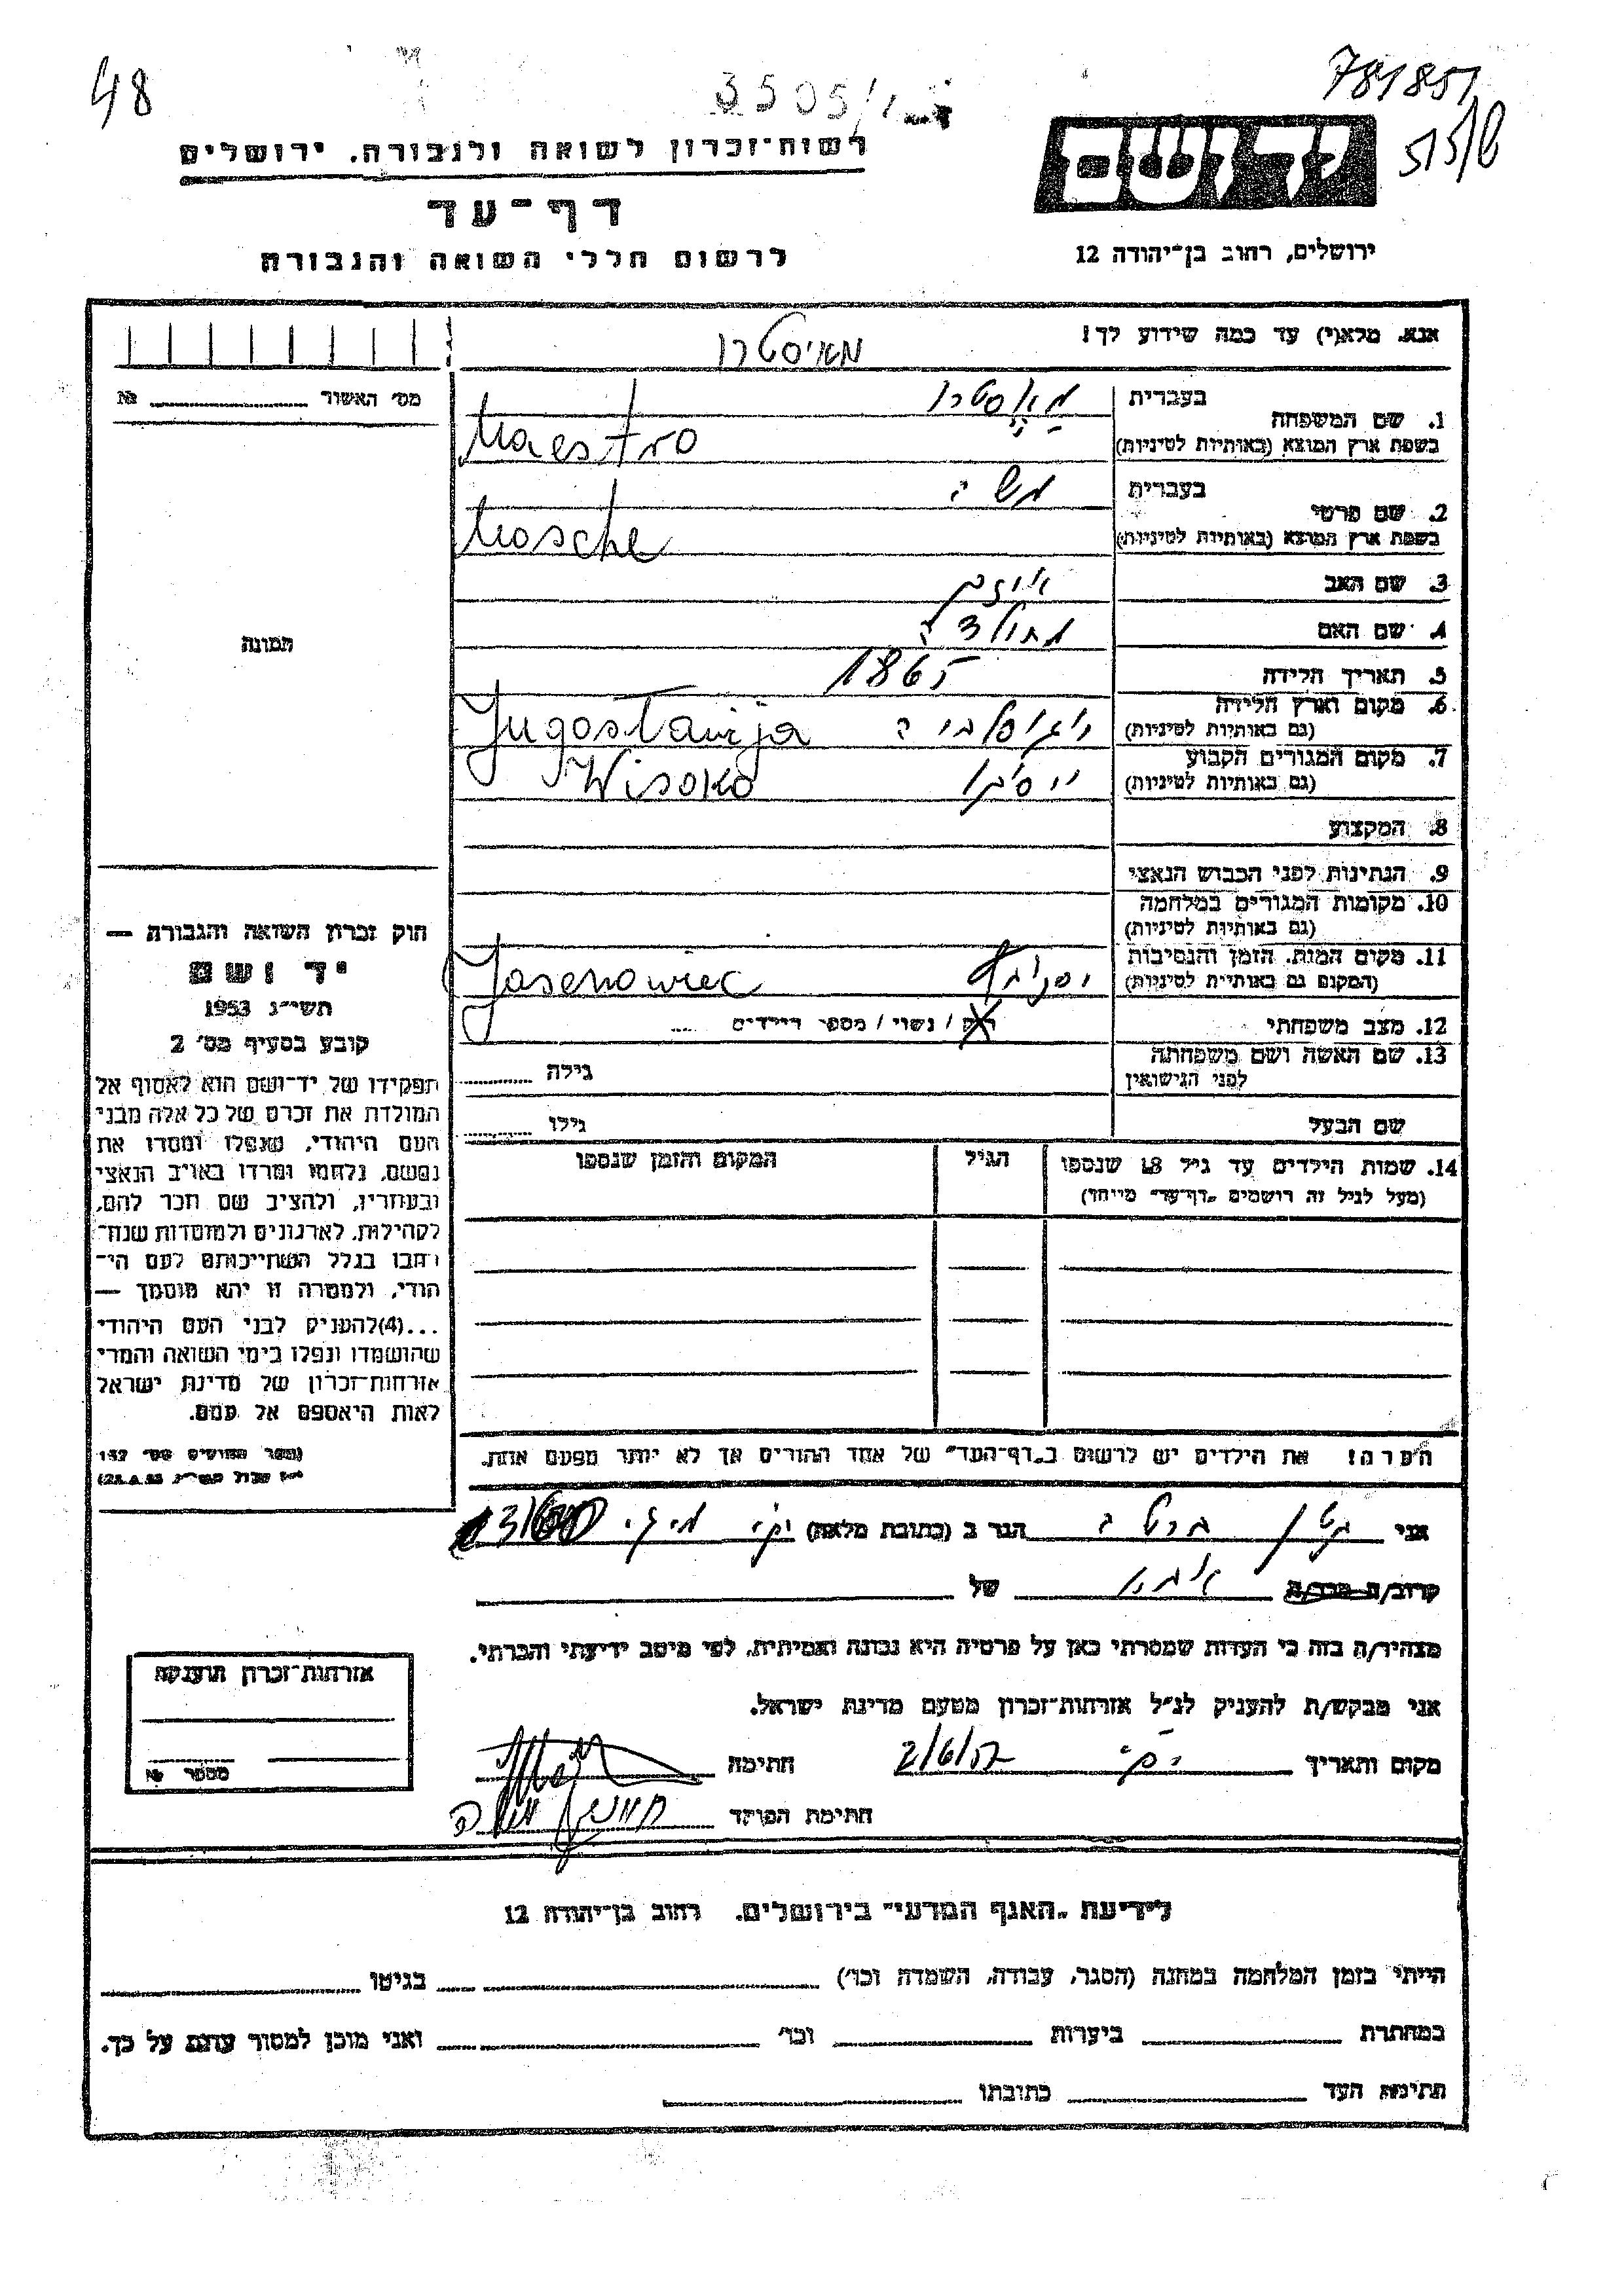 48
3505/
781851
רשות-זכרון לשואה ולגבורה. ירושלים
דף-עד
לרשום חללי השואה והגבורה
יד ושם
ירושלים, רחוב בן-יהודה 12
אנא. מלא(י) עד כמה שידוע לך!
מאיסטרו
מס׳ האשור № ............
1. שם המשפחה
בעברית
מאסטרו
בשפת ארץ המוצא (באותיות לטיניות)
Maestro
2. שם פרטי
בעברית
משה
בשפת ארץ המוצא (באותיות לטיניות)
Mosche
3. שם האב
4. שם האם
5. תאריך הלידה 1865
6. מקום וארץ הלידה
(גם באותיות לטיניות)
יוגוסלביה Jugoslawija
7. מקום המגורים הקבוע
(גם באותיות לטיניות)
ויסוקו Wisoko
8. המקצוע
9. הנתינות לפני הכבוש הנאצי
10. מקומות המגורים במלחמה
(גם באותיות לטיניות)
11. מקום המות. הזמן והנסיבות
(המקום גם באותיות לטיניות)
Jasenowiec
12. מצב משפחתי
רוק / נשוי / מספר הילדים ....
13. שם האשה ושם משפחתה
לפני הנישואין
גילה ............
שם הבעל
גילו ............
14. שמות הילדים עד גיל 18 שנספו
(מעל לגיל זה רושמים „דף-עד״ מייוחד)
הגיל
המקום והזמן שנספו
הערה! את הילדים יש לרשום ב„דף-העד״ של אחד ההורים אך לא יותר מפעם אחת.
תמונה
חוק זכרון השואה והגבורה —
יד ושם
תשי״ג 1953
קובע בסעיף מס׳ 2
תפקידו של יד-ושם הוא לאסוף אל
המולדת את זכרם של כל אלה מבני
העם היהודי, שנפלו ומסרו את
נפשם, נלחמו ומרדו באויב הנאצי
ובעוזריו, ולהציב שם וזכר להם,
לקהילות, לארגונים ולמוסדות שנח-
רבו בגלל השתייכותם לעם הי-
הודי, ולמטרה זו יהא מוסמך —
...(4)להעניק לבני העם היהודי
שהושמדו ונפלו בימי השואה והמרי
אזרחות-זכרון של מדינת ישראל
לאות היאספם אל עמם.
(ספר החוקים מס׳ 132
אני הגר ב (כתובת מלאה)
קרוב/ה מכר/ה של
מצהיר/ה בזה כי העדות שמסרתי כאן על פרטיה היא נכונה ואמיתית, לפי מיטב ידיעתי והכרתי.
אני מבקש/ת להעניק לנ״ל אזרחות-זכרון מטעם מדינת ישראל.
מקום ותאריך 2/6/57 חתימה
חתימת הפוקד
אזרחות-זכרון תוענקה
מספר №
לידיעת „האגף המדעי״ בירושלים. רחוב בן-יהודה 12
הייתי בזמן המלחמה במחנה (הסגר, עבודה, השמדה וכו׳) בגיטו
במחתרת ביערות וכו׳ ואני מוכן למסור עדות על כך.
חתימא העד כתובתו